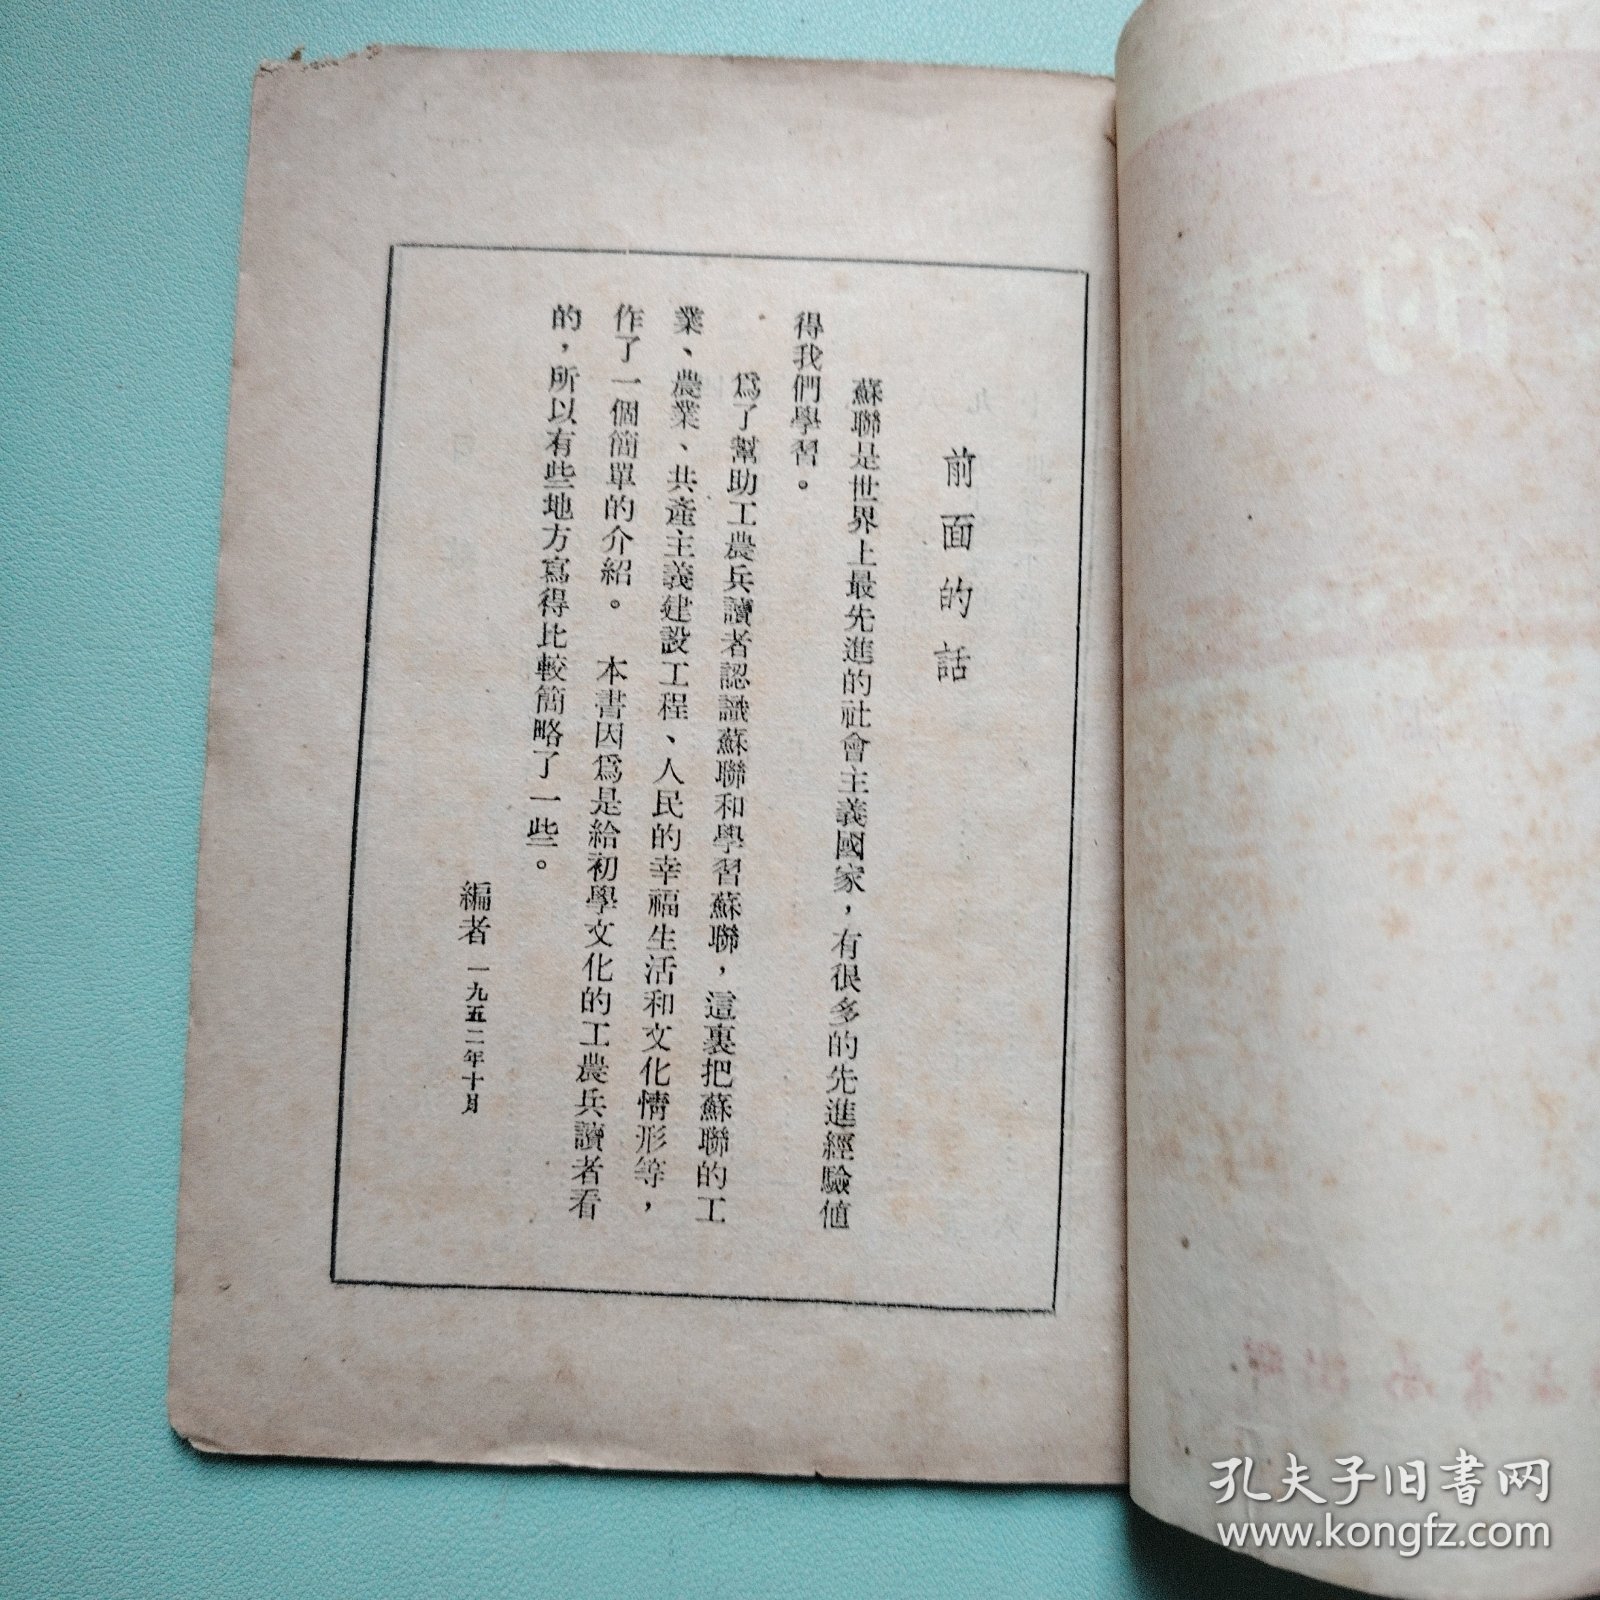 前面的話
蘇聯是世界上最先進的社會主義國家，有很多的先進經驗值
得我們學習。
爲了幫助工農兵讀者認識蘇聯和學習蘇聯，這裏把蘇聯的工
業、農業、共產主義建設工程、人民的幸福生活和文化情形等，
作了一個簡單的介紹。本書因爲是給初學文化的工農兵讀者看
的，所以有些地方寫得比較簡略了一些。
編者 一九五二年十月
孔夫子旧书网
www.kongfz.com